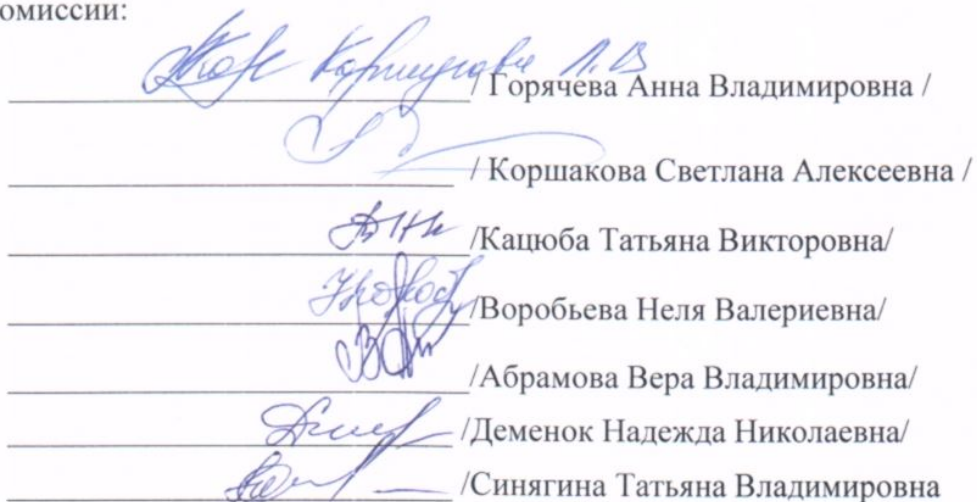 омиссии:
/ Горячева Анна Владимировна /
/ Коршакова Светлана Алексеевна /
/Кацюба Татьяна Викторовна/
/Воробьева Неля Валериевна/
/Абрамова Вера Владимировна/
/Деменок Надежда Николаевна/
/Синягина Татьяна Владимировна